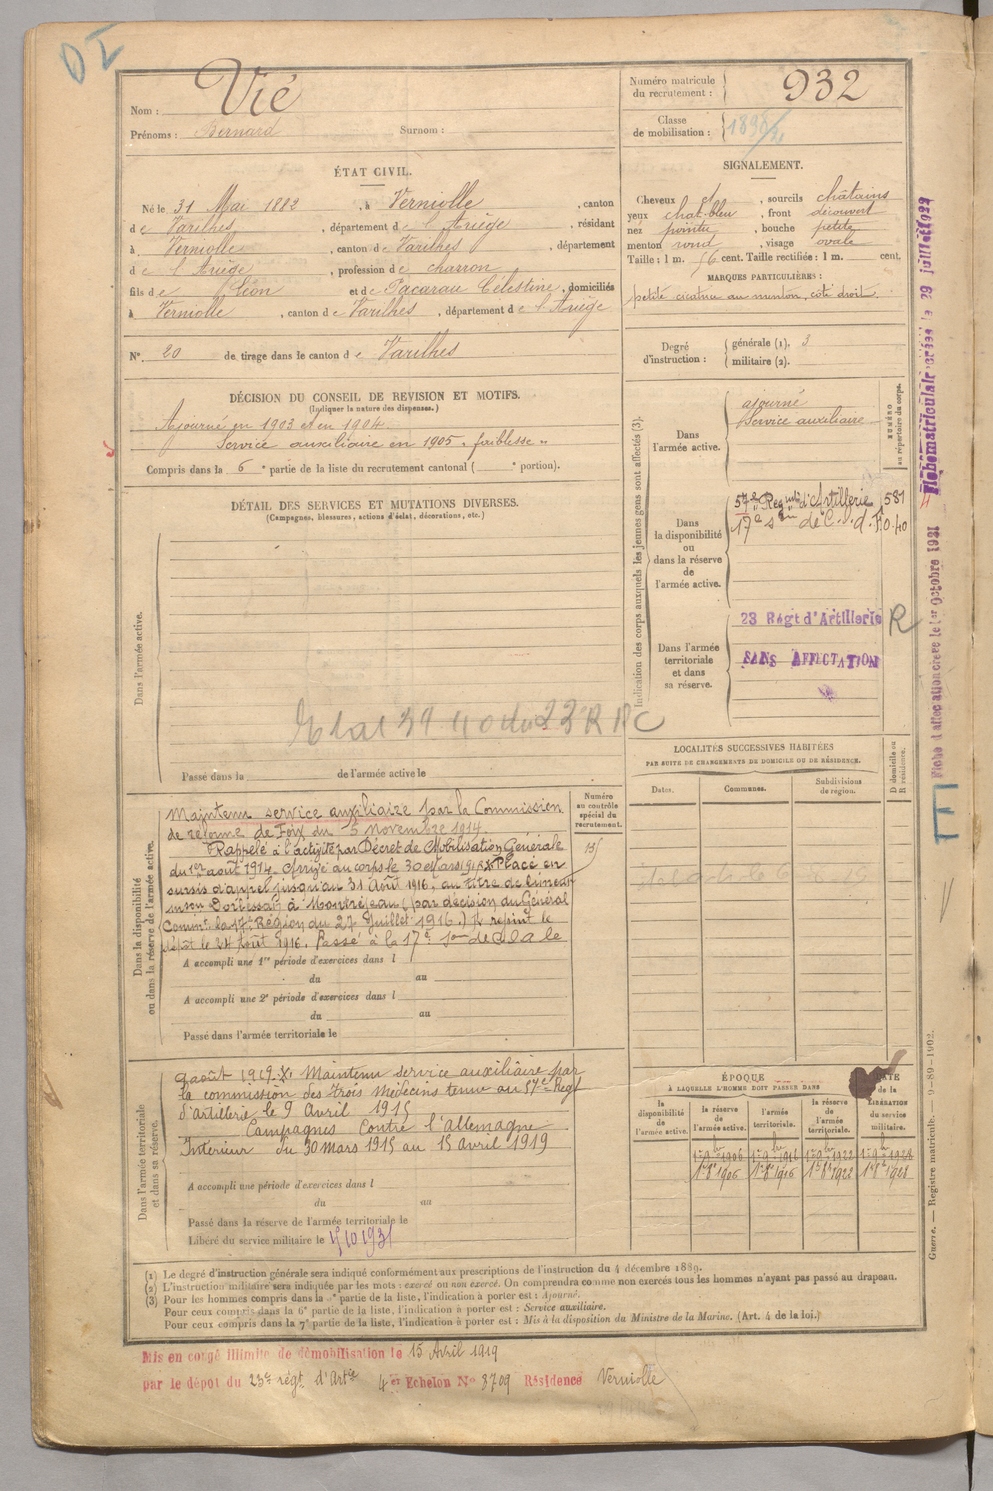 DI
Nom : Vié
Prénoms : Bernard Surnom :
Numéro matricule du recrutement : 932
Classe de mobilisation :
ÉTAT CIVIL.
Né le 31 Mai 1882, à Verniolle, canton
de Varilhes, département de l'Ariège, résidant
à Verniolle, canton de Varilhes, département
de l'Ariège, profession de charron
fils de Léon et de Pacarau Célestine, domiciliés
à Verniolle, canton de Varilhes, département de l'Ariège
N° 20 de tirage dans le canton de Varilhes
SIGNALEMENT.
Cheveux et, sourcils châtains
yeux chat. bleu, front découvert
nez pointu, bouche petite
menton rond, visage ovale
Taille : 1 m. 56 cent. Taille rectifiée : 1 m. cent.
MARQUES PARTICULIÈRES :
petite cicatrice au menton, côté droit.
Degré d'instruction : générale (1). 3
militaire (2).
DÉCISION DU CONSEIL DE REVISION ET MOTIFS.
(Indiquer la nature des dispenses.)
Ajourné en 1903 et en 1904.
Service auxiliaire en 1905 " faiblesse "
Compris dans la 6e partie de la liste du recrutement cantonal ( e portion).
DÉTAIL DES SERVICES ET MUTATIONS DIVERSES.
(Campagnes, blessures, actions d'éclat, décorations, etc.)
Dans l'armée active.
Passé dans la de l'armée active le
Indication des corps auxquels les jeunes gens sont affectés (3).
NUMÉRO au répertoire du corps.
Dans l'armée active.
ajourné
Service auxiliaire
Dans la disponibilité ou dans la réserve de l'armée active.
57e Regt d'Artillerie 581
17e
Dans l'armée territoriale et dans sa réserve.
23 Régt d'Artillerie R
SANS AFFECTATION
LOCALITÉS SUCCESSIVES HABITÉES
PAR SUITE DE CHANGEMENTS DE DOMICILE OU DE RÉSIDENCE.
Dates. Communes. Subdivisions de région. D domicile ou R résidence.
Dans la disponibilité ou dans la réserve de l'armée active.
Numéro au contrôle spécial du recrutement.
Maintenu service auxiliaire par la Commission
de réforme de Foix du 5 Novembre 1914.
Rappelé à l'activité par Décret de Mobilisation Générale
du 1er août 1914. Arrivé au corps le 30 Mars 1915 X Placé en
sursis d'appel jusqu'au 31 Août 1916, au titre de
à Montréjeau (par décision du Général
Commt la 17e Région du 27 Juillet 1916.) Il rejoint le
dépôt le 24 Août 1916. Passé à la 17e le
A accompli une 1re période d'exercices dans l
du au
A accompli une 2e période d'exercices dans l
du au
Passé dans l'armée territoriale le
Dans l'armée territoriale et dans sa réserve.
août 1919. X Maintenu service auxiliaire par
la commission des trois Médecins tenue au 57e Regt
d'artillerie le 9 Avril 1915
Campagnes Contre l'Allemagne
Intérieur du 30 mars 1915 au 15 avril 1919
A accompli une période d'exercices dans l
du au
Passé dans la réserve de l'armée territoriale le
Libéré du service militaire le
ÉPOQUE
À LAQUELLE L'HOMME DOIT PASSER DANS
DATE de la LIBÉRATION du service militaire.
la disponibilité de l'armée active. la réserve de l'armée active. l'armée territoriale. la réserve de l'armée territoriale.
(1) Le degré d'instruction générale sera indiqué conformément aux prescriptions de l'instruction du 4 décembre 1889.
(2) L'instruction militaire sera indiquée par les mots : exercé ou non exercé. On comprendra comme non exercés tous les hommes n'ayant pas passé au drapeau.
(3) Pour les hommes compris dans la partie de la liste, l'indication à porter est : Ajourné.
Pour ceux compris dans la 6e partie de la liste, l'indication à porter est : Service auxiliaire.
Pour ceux compris dans la 7e partie de la liste, l'indication à porter est : Mis à la disposition du Ministre de la Marine. (Art. 4 de la loi.)
Mis en congé illimité de démobilisation le 15 Avril 1919
par le dépôt du 23e régt d'Artie 4er Echelon N° 3709 Résidence Verniolle
Fiche d'affectation créée le 1er octobre 1921
Fiche matriculaire créée le 29 juillet 1922
Guerre. — Registre matricule. — 9-89-1902.